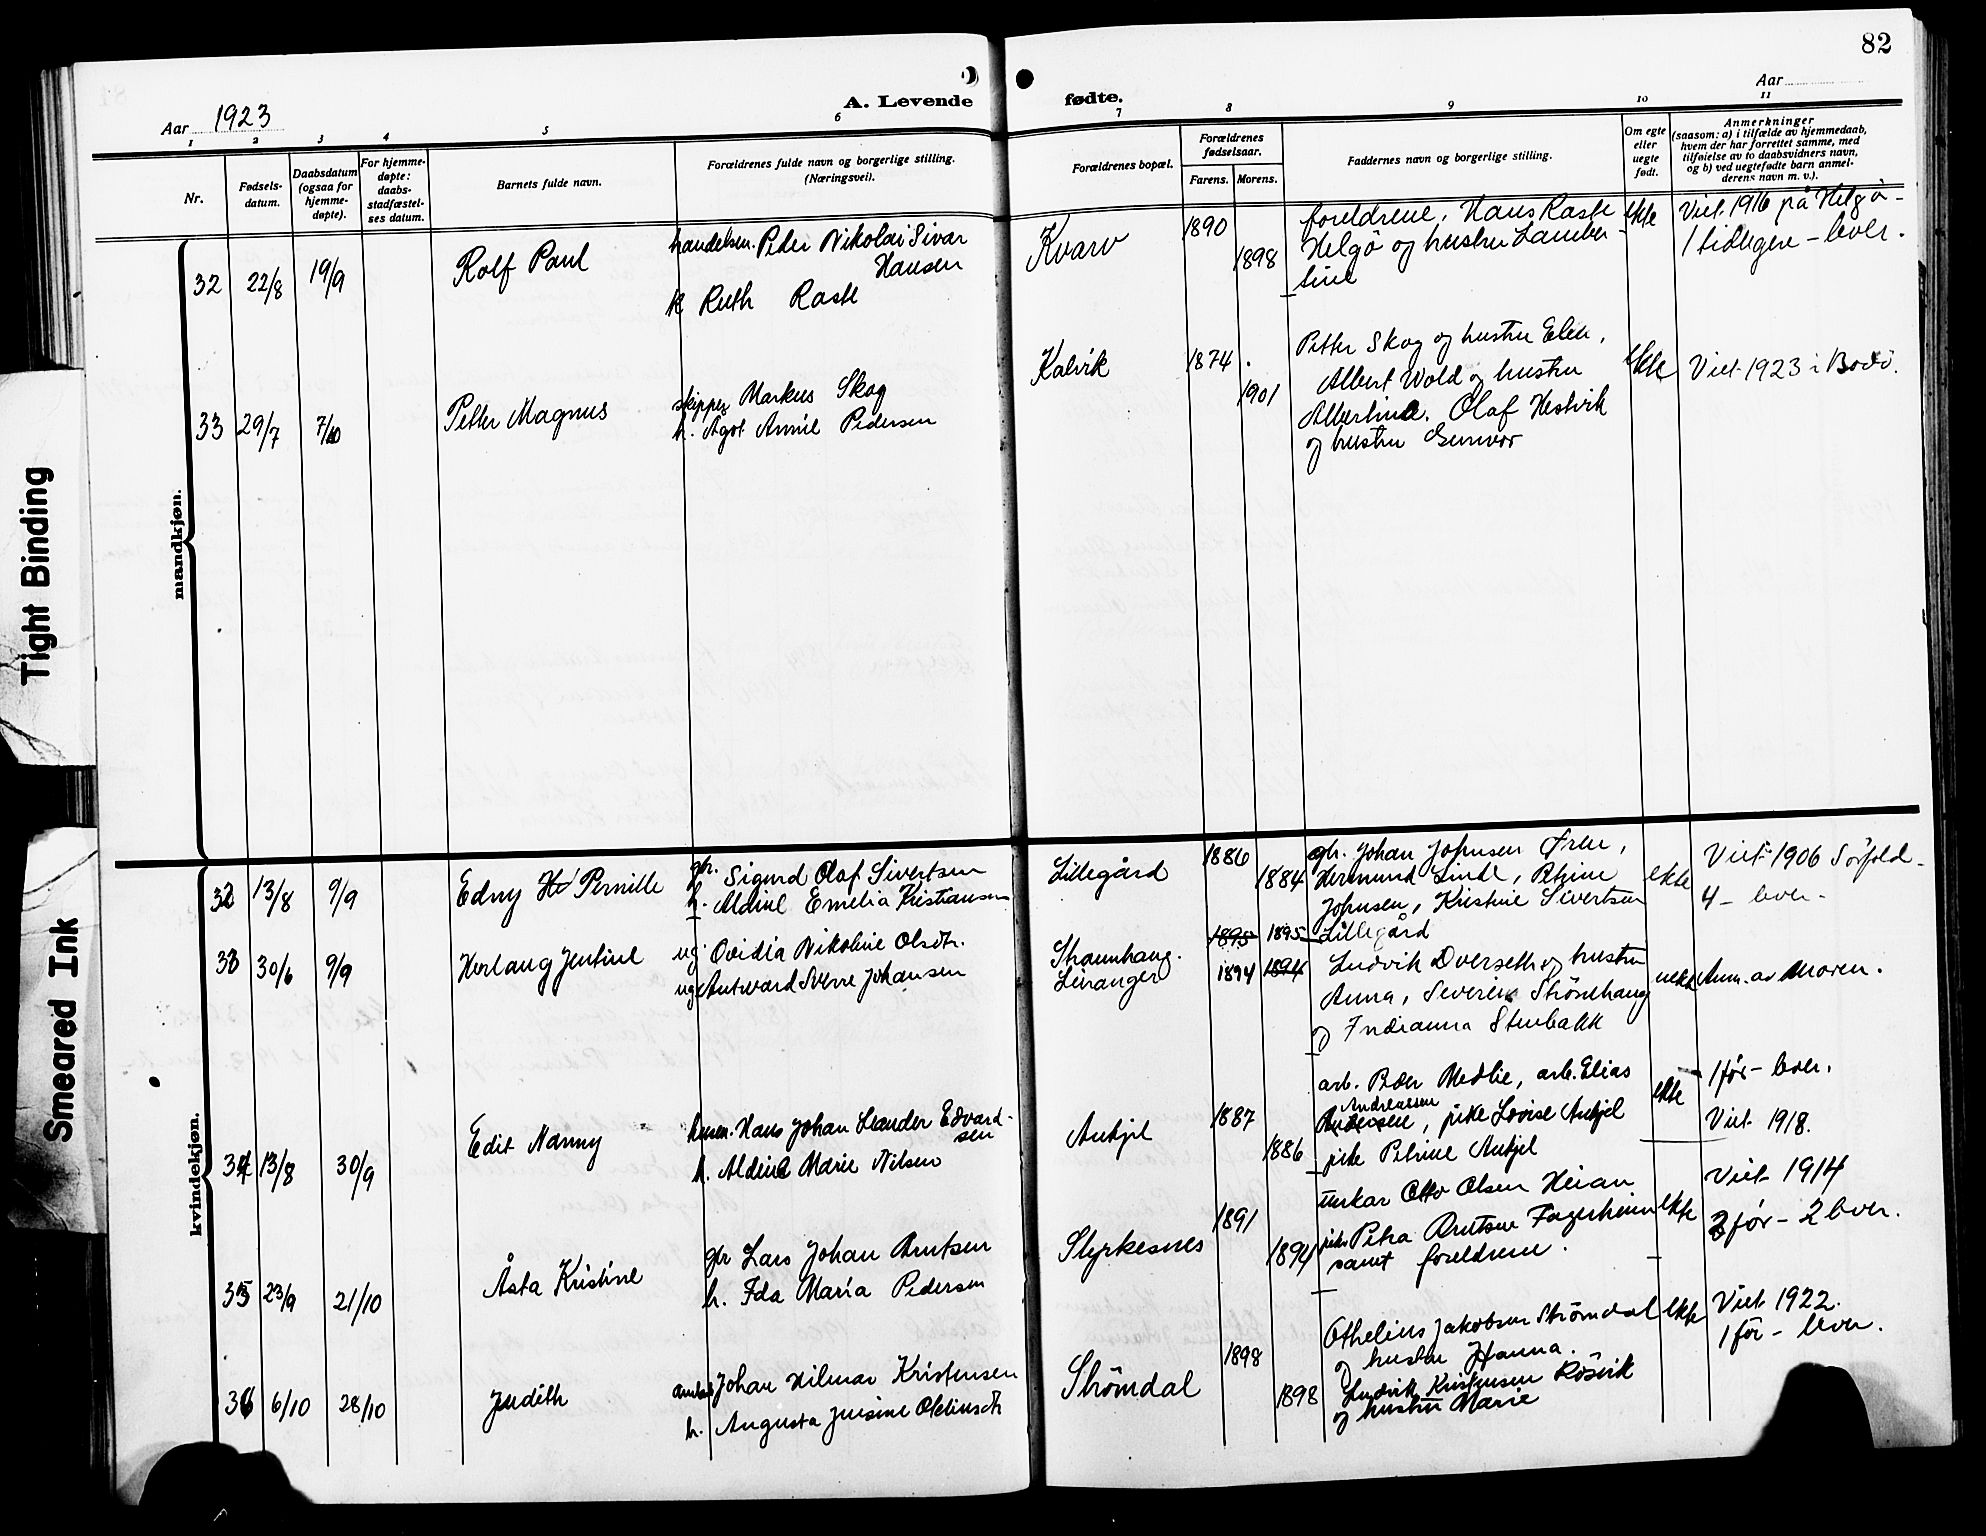 82
Aar 1923
A. Levende fødte.
Aar
1 2 3 4 5 6 7 8 9 10 11
Nr.
Fødsels-
datum.
Daabsdatum
(ogsaa for
hjemme-
døpte).
For hjemme-
døpte:
daabs-
stadfæstel-
ses datum.
Barnets fulde navn.
Forældrenes fulde navn og borgerlige stilling.
(Næringsvei).
Forældrenes bopæl.
Forældrenes
fødselsaar.
Farens. Morens.
Faddernes navn og borgerlige stilling.
Om egte
eller
uegte
født.
Anmerkninger
(saasom: a) i tilfælde av hjemmedaab,
hvem der har forrettet samme, med
tilføielse av to daabsvidners navn,
og b) ved uegtefødte barn anmel-
derens navn m. v.).
mandkjøn.
32 22/8 19/9 Rolf Paul
handelsm. Peder Nikolai Sivar
Hansen
h Ruth Rask
Kvarv 1890 1898
foreldrene, Hans Rask
Helgö og hustru Lamber
tine
ekte
Viet 1916 på Helgö -
1 tidligere - lever.
33 29/7 7/10 Petter Magnus
skipper Markus Skog
h. Agot Annie Pedersen
Kalvik 1874 1901
Petter Skog og hustru Elen,
Albert Wold og hustru
Albertine. Olaf Hestvik
og hustru Gunvor
ekte
Viet 1923 i Bodö.
kvindekjøn.
32 13/8 9/9 Edny Pernille
gbr. Sigurd Olaf Sivertsen
h. Aldine Emelia Kristiansen
Lillegård 1886 1884
gbr. Johan Johnsen Øren,
Hermund Linde, Petrine
Johnsen, Kristine Sivertsen
Lillegård
ekte
Viet 1906 Sörfold -
4 - lever -
33 30/6 9/9 Herlaug Jentine
ug. Ovidia Nikoline Olsdtr.
ug. Antward Sverre Johansen
Straumhaug.
Leiranger
1895 1895
1894 1894
Ludvik Dverseth og hustru
Anna, Severin Strömhaug
og Indianna Stenbakk
uekte
Anm. av Moren.
34 13/8 30/9 Edit Nanny
Hans Johan Leander Edvard-
sen
h. Aldine Marie Nilsen
Aukjel 1887 1886
arb. Peder Medlie, arb. Elias
Andreassen
Andersen, pike Lovise Aukjel
pike Petrine Aukjel
ekte
1 för - lever.
Viet 1918.
35 23/9 21/10 Åsta Kristine
gbr Lars Johan Arntsen
h. Ida Maria Pedersen
Styrkesnes 1891 1894
unkar Otto Olsen Heian
pike Petra Arntsen Fagerheim
samt foreldrene.
ekte
Viet 1914
3 för - 2 lever.
36 6/10 28/10 Judith
Johan Hilmar Kristensen
h. Augusta Jensine Oldinsdtr
Strömdal 1898 1898
Othelius Jakobsen Strömdal
og hustru Hanna.
Ludvik Kristensen Rösvik
og hustru Marie
ekte
Viet 1922.
1 för - lever.
Tight Binding
Smeared Ink